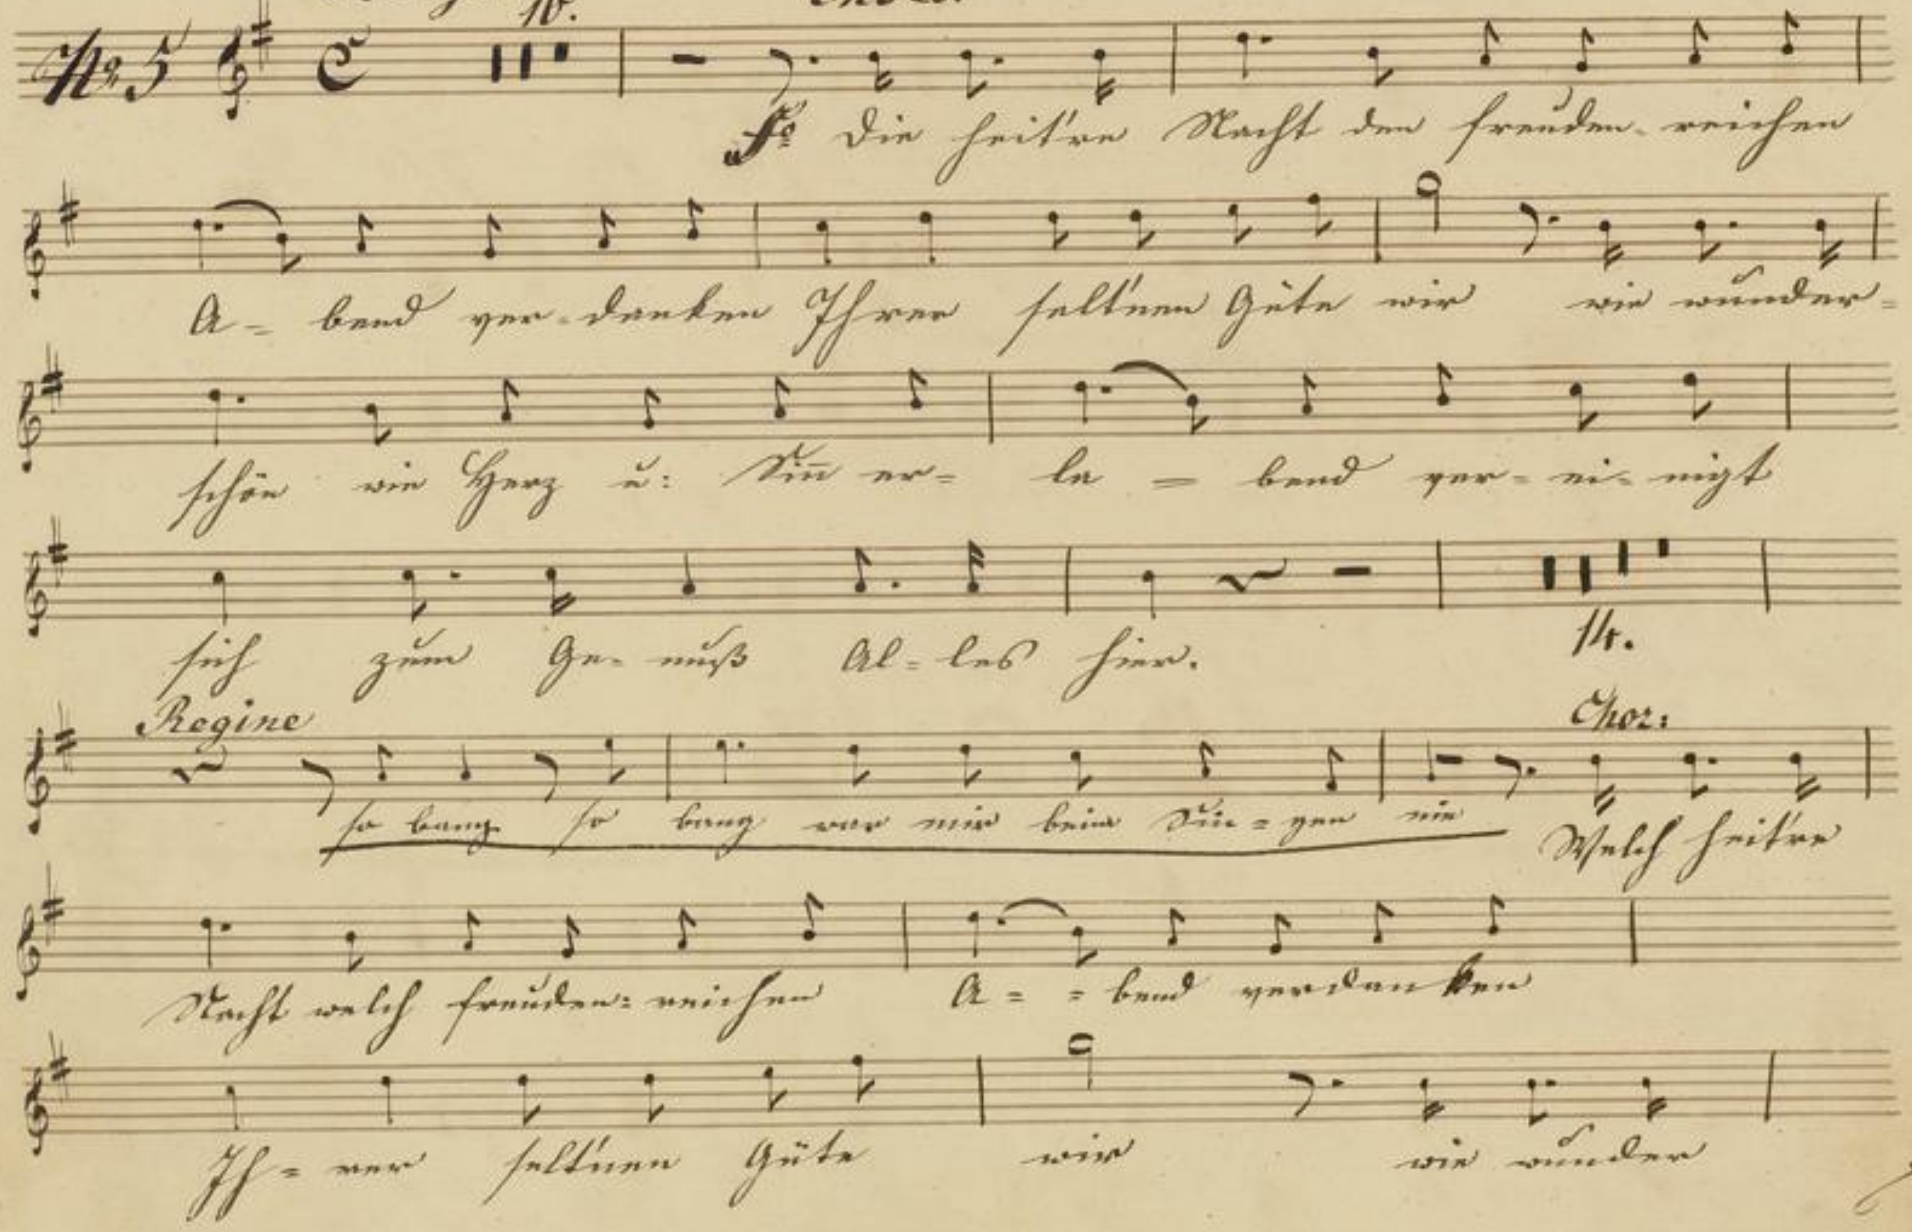 10.
№ 5
Fo Die heit're Nacht den freuden-reichen
A-bend ver-danken Ihrer selt'nen Güte wir wie wunder-
schön wie Herz u: Siñ er-la=bend ver-ei-nigt
sich zum Ge-nuß Al-les hier.
14.
Regine Chor:
so bang so bang war mir beim Sin=gen nie Welch heit're
Nacht welch freuden=reichen A==bend verdanken
Ih=rer selt'nen Güte wir wie wunder